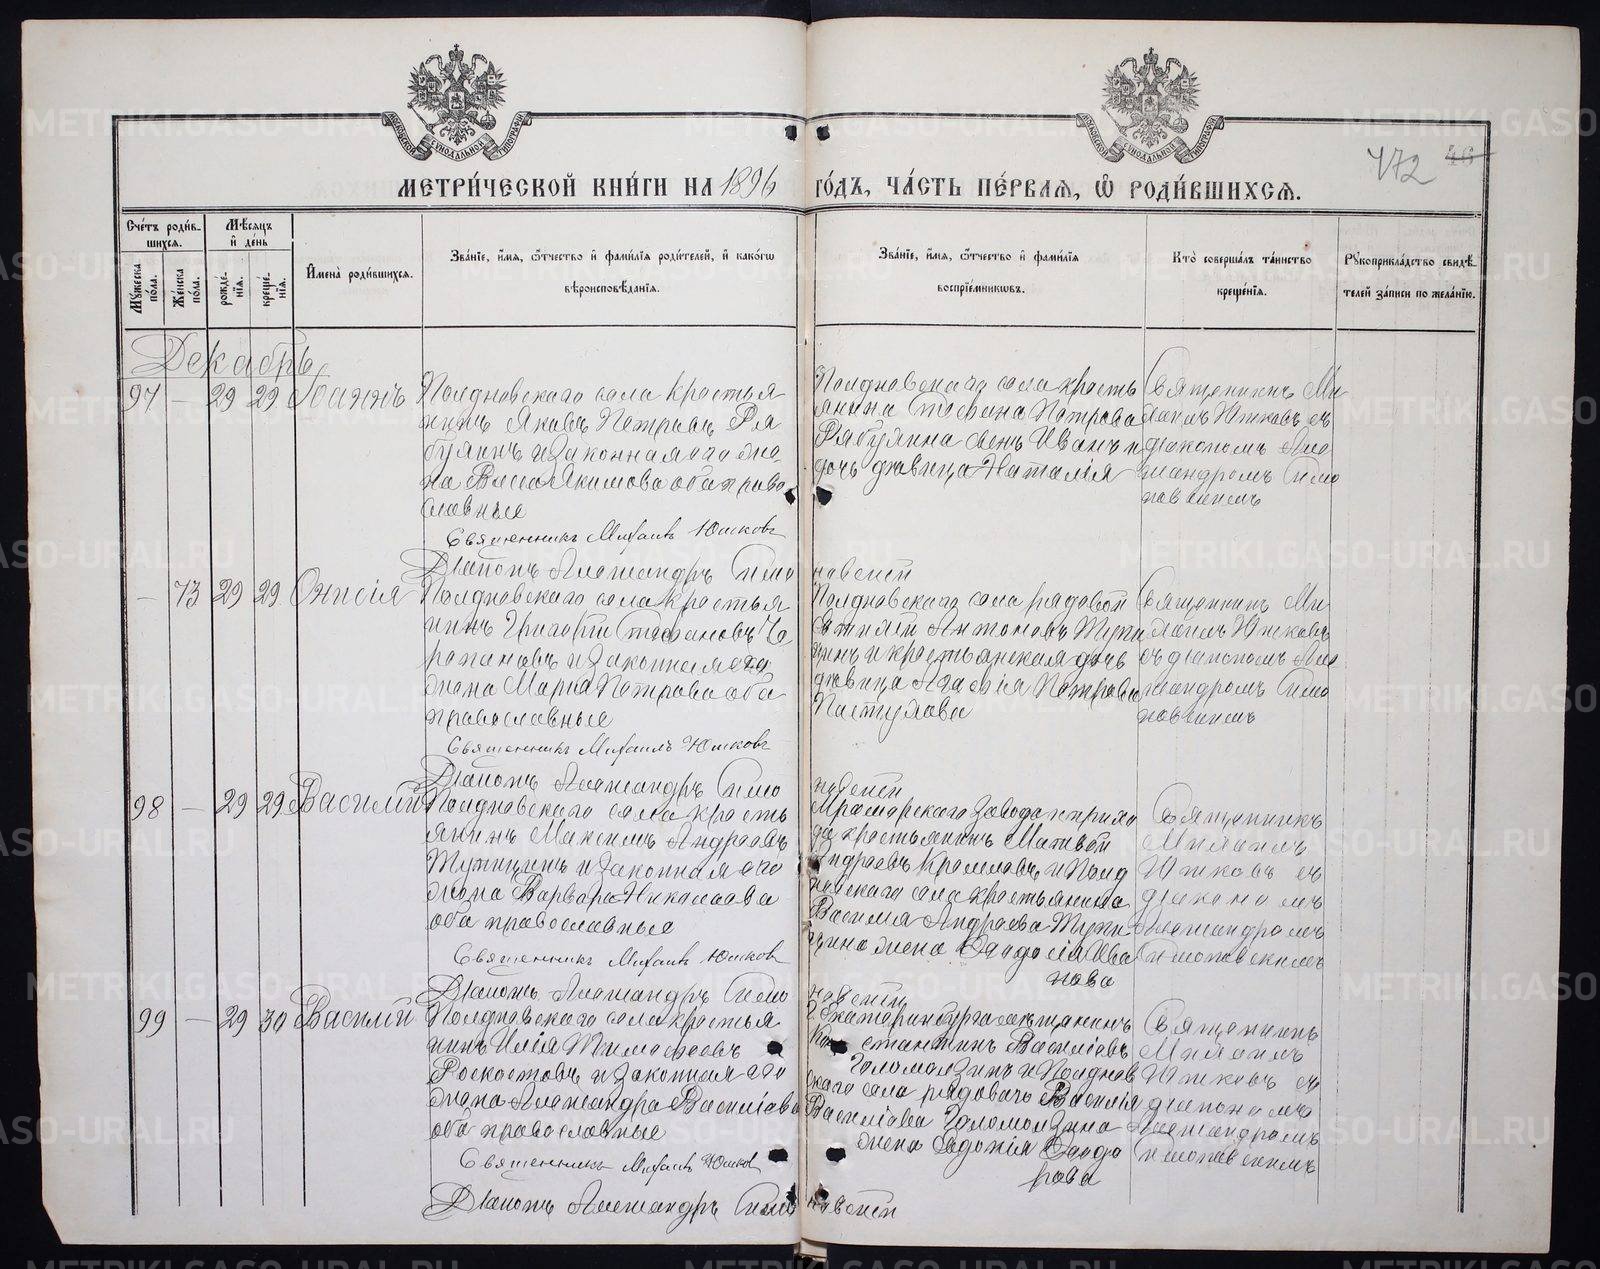 МЕТРИ́ЧЕСКОЙ КНИ́ГИ НА 1896 ГО́ДЪ, ЧА́СТЬ ПЕ́РВАѦ, Ѿ РОДИ́ВШИХСѦ.
472 46
Сче́тъ роди́вшихсѧ.
Мꙋ́жеска по́ла.
Же́нска по́ла.
Мѣ́сѧцъ и҆ де́нь
рожде́нїѧ.
креще́нїѧ.
И҆мена̀ роди́вшихсѧ.
Зва́нїе, и҆́мѧ, ѻ҆́тчество и҆ фами́лїѧ роди́телей, и҆ како́гѡ
вѣроисповѣ́данїѧ.
Зва́нїе, и҆́мѧ, ѻ҆́тчество и҆ фами́лїѧ
воспрїе́мникѡвъ.
Кто̀ соверша́лъ та́инство
креще́нїѧ.
Рꙋкоприкла́дство свидѣ́-
телей за́писи по жела́нїю.
Декабрь
97 — 29 29 Іоаннъ
Полдневскаго села крестья
нинъ Яковъ Петровъ Ря
буxинъ и законная его же
на Васса Якимова оба право
славные
Священникъ Михаилъ Юшковъ
Діаконъ Александръ Симо
новскій
Полдневскаго села кресть
янина Стефана Петрова
сынъ Иванъ и
дочь дѣвица Наталія
Священникъ Ми
хаилъ Юшковъ съ
діакономъ Але
ксандромъ Симо
новскимъ
— 73 29 29 Онисія
Полдневскаго села крестья
нинъ Григорій Стефановъ Че
репановъ и законная его
жена Марія Петрова оба
православные
Священникъ Михаилъ Юшковъ
Діаконъ Александръ Симо
новскій
Полдневскаго села рядовой
Антоновъ Тупи
цинъ и крестьянская дочь
дѣвица Агафія Петрова
Пастухова
Священникъ Ми
хаилъ Юшковъ
съ діакономъ Але
ксандромъ Симо
новскимъ
98 — 29 29 Василій
Полдневскаго села кресть
янинъ Максимъ Андреевъ
Тупицинъ и законная его
жена Варвара Николаева
оба православные
Священникъ Михаилъ Юшковъ
Діаконъ Александръ Симо
новскій
Мраморскаго завода и прихо
да крестьянинъ Матвей
Андреевъ и Полд
невскаго села крестьянина
Василія Андреева Тупи
цина жена Ива
нова
Священникъ
Михаилъ
Юшковъ съ
діакономъ
Александромъ
Симоновскимъ
99 — 29 30 Василій
Полдневскаго села крестья
нинъ Илія Тимофеевъ
и законная его
жена Александра Василіева
оба православные
Священникъ Михаилъ Юшковъ
Діаконъ Александръ Симо
новскій
Г. Екатеринбурга мѣщанинъ
Константинъ Василіевъ
Голомолзинъ и Полднев
скаго села рядового Василія
Василіева Голомолзина
жена Ѳеодо
рова
Священникъ
Михаилъ
Юшковъ съ
діакономъ
Александромъ
Симоновскимъ
METRIKI.GASO-URAL.RU